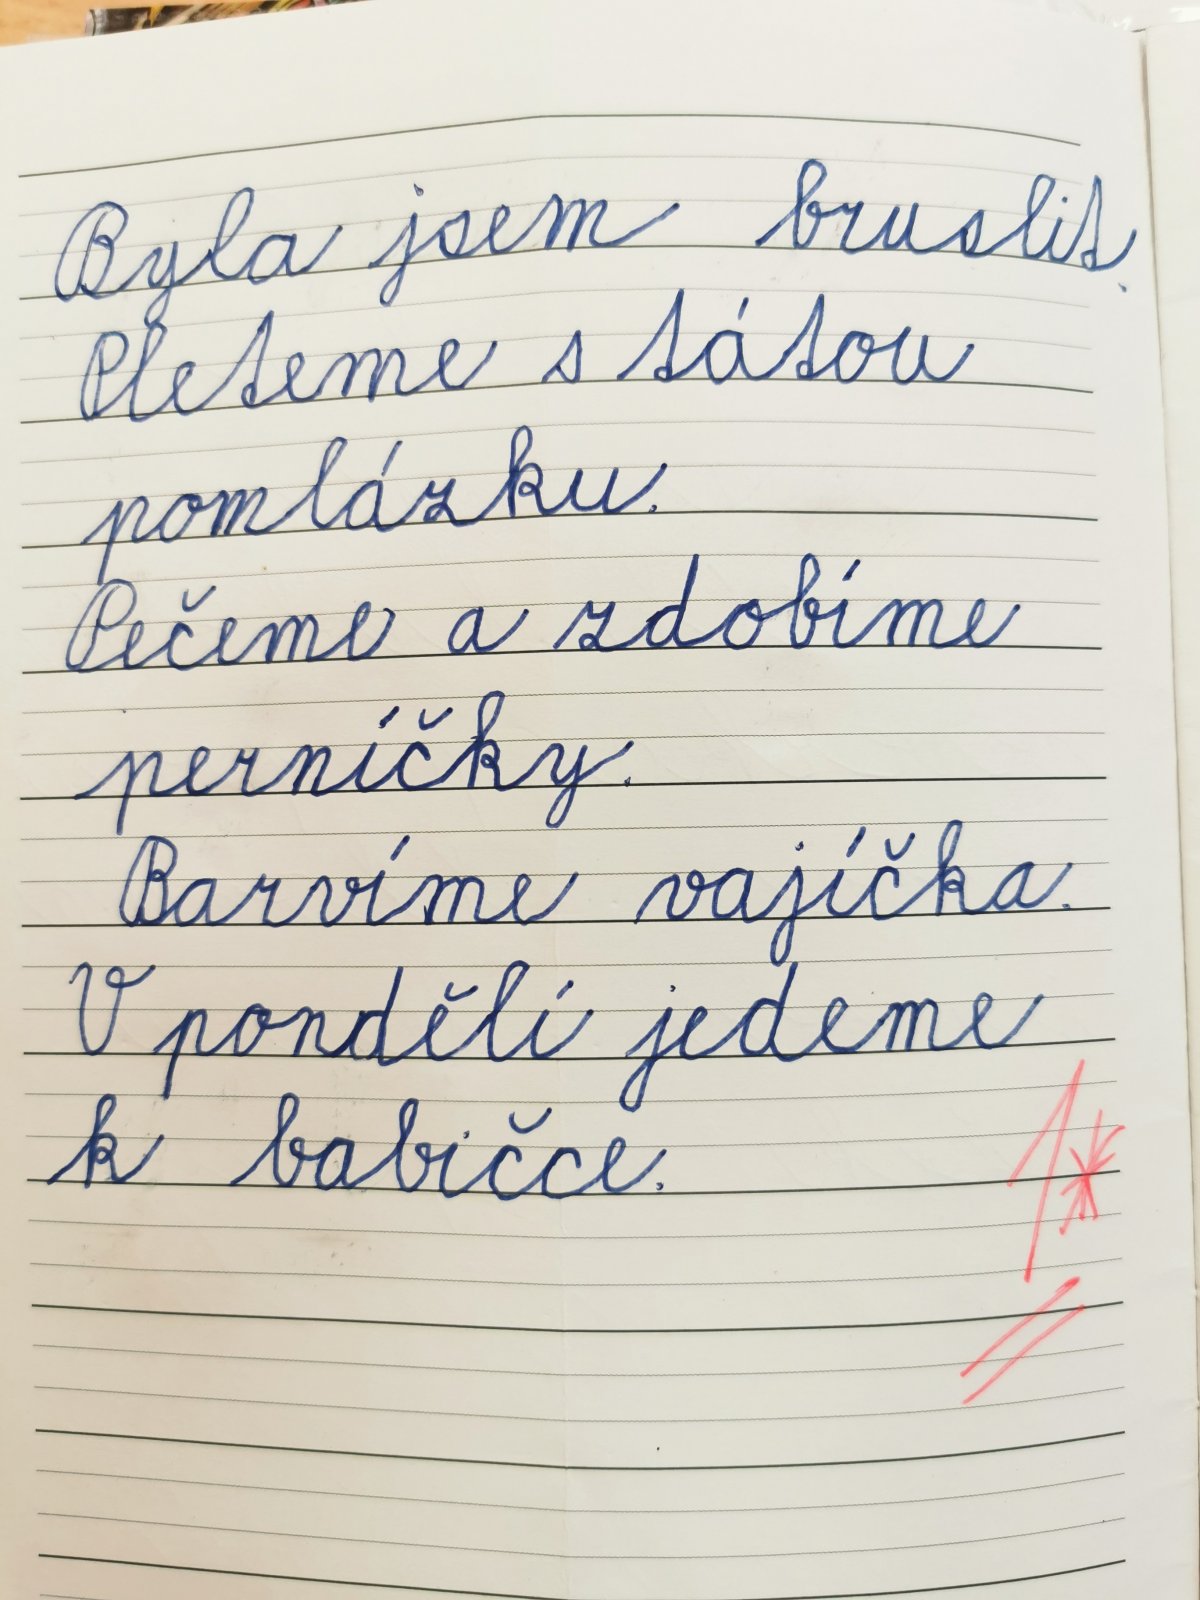 Byla jsem bruslit.
Pleteme s tátou
pomlázku.
Pečeme a zdobíme
perníčky.
Barvíme vajíčka.
V pondělí jedeme
k babičce.
1*